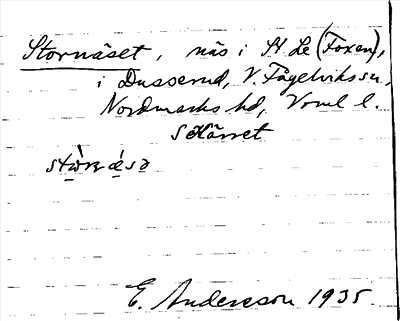 Stornäset, näs i St. Le (Foxen),
i Dusserud, V. Fågelviks sn,
Nordmarks hd, Vrml l.
Skärret
E. Andersson 1935.